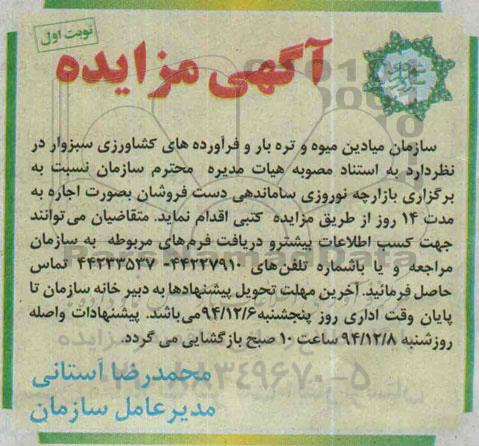 نوبت اول
آگهی مزایده
سازمان میادین میوه و تره بار و فرآورده های کشاورزی سبزوار در
نظردارد به استناد مصوبه هیات مدیره محترم سازمان نسبت به
برگزاری بازارچه نوروزی ساماندهی دست فروشان بصورت اجاره به
مدت ۱۴ روز از طریق مزایده کتبی اقدام نماید. متقاضیان می توانند
جهت کسب اطلاعات پیشترو دریافت فرم‌های مربوطه به سازمان
مراجعه و یا باشماره تلفن‌های ۴۴۲۲۷۹۱۰- ۴۴۲۳۳۵۳۷ تماس
حاصل فرمائید. آخرین مهلت تحویل پیشنهادها به دبیر خانه سازمان تا
پایان وقت اداری روز پنجشنبه۹۴/۱۲/۶می‌باشد. پیشنهادات واصله
روزشنبه ۹۴/۱۲/۸ ساعت ۱۰ صبح بازگشایی می گردد.
محمدرضا آستانی
مدیرعامل سازمان